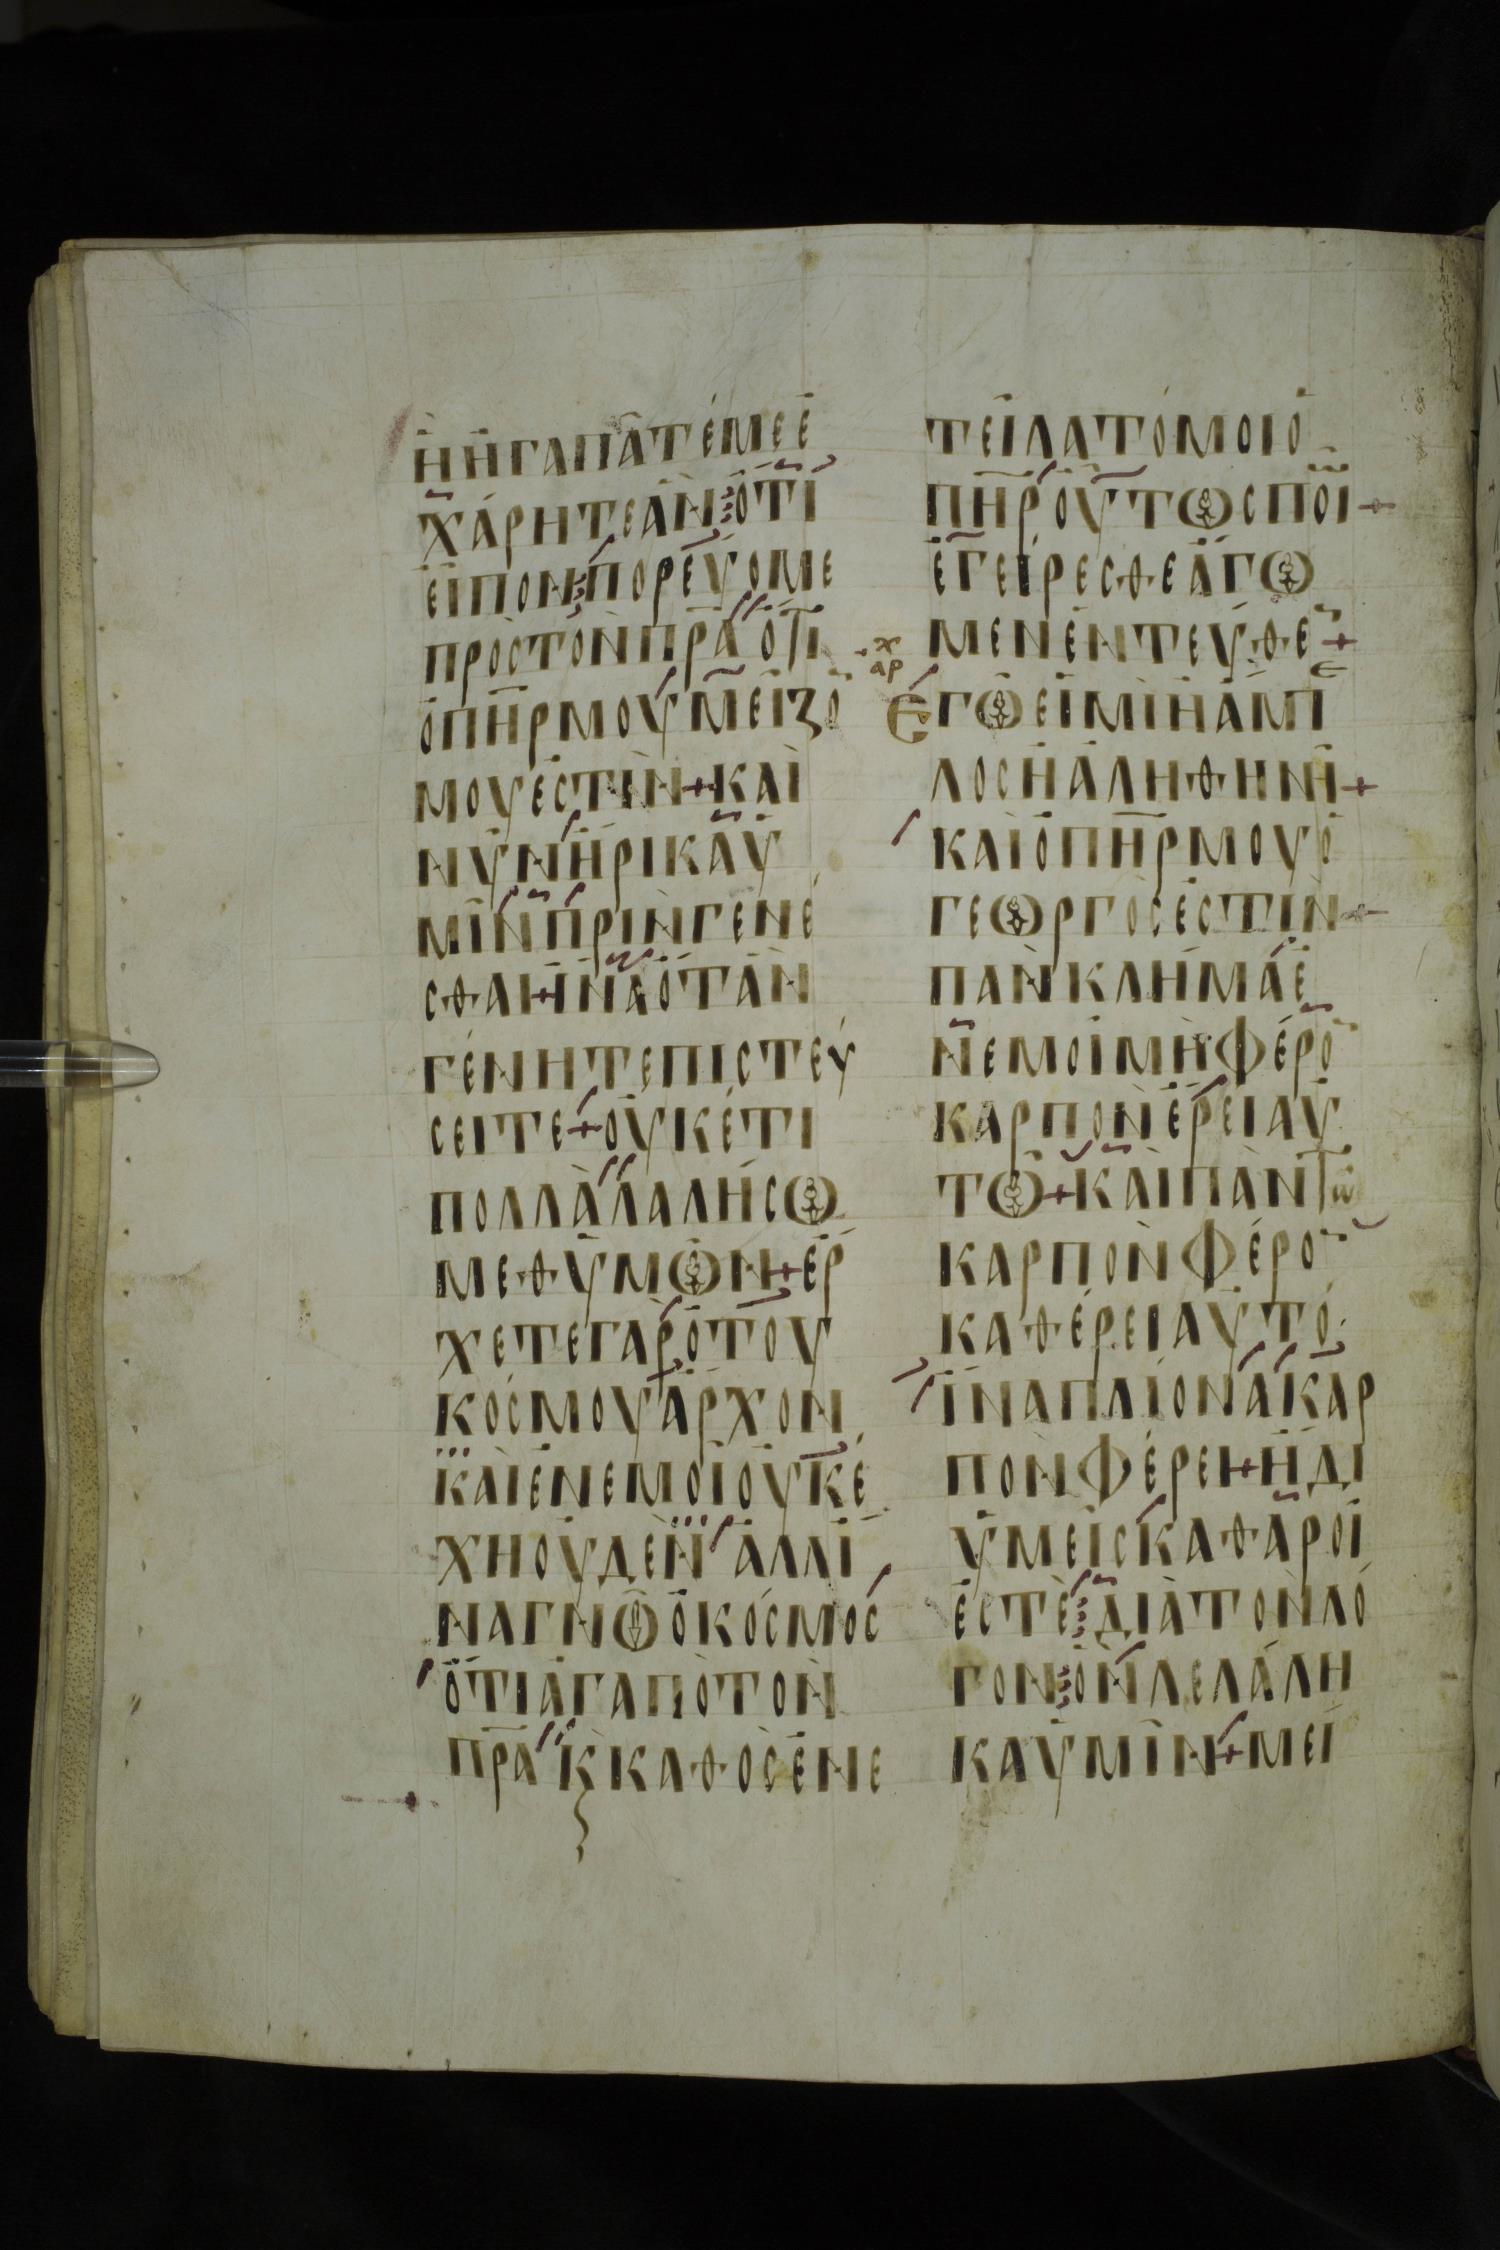 ΗΗΓΑΠΑΤΕΜΕΕ
ΧΑΡΗΤΕΑΝ ΟΤΙ
ΕΙΠΟΝ ΠΟΡΕΥΟΜΕ
ΠΡΟΣΤΟΝΠΡΑ ΟΤΙ
ΟΠΗΡΜΟΥΜΕΙΖΟ
ΜΟΥΕΣΤΙΝ+ΚΑΙ
ΝΥΝΗΡΙΚΑΥ
ΜΙΝΠΡΙΝΓΕΝΕ
ΣΘΑΙ+ΙΝΑΟΤΑΝ
ΓΕΝΗΤΕΠΙΣΤΕΥ
ΣΕΙΤΕ+ΟΥΚΕΤΙ
ΠΟΛΛΑΛΑΛΗΣΩ
ΜΕΘΥΜΩΝ+ΕΡ
ΧΕΤΕΓΑΡΟΤΟΥ
ΚΟΣΜΟΥΑΡΧΟΝ
ΚΑΙΕΝΕΜΟΙΟΥΚΕ
ΧΗΟΥΔΕΝ ΑΛΛΙ
ΝΑΓΝΩΟΚΟΣΜΟΣ
ΟΤΙΑΓΑΠΟΤΟΝ
ΠΡΑ ΚΚΑΘΟΣΕΝΕ
ΤΕΙΛΑΤΟΜΟΙΟ
ΠΗΡΟΥΤΩΣΠΟΙ+
ΕΓΕΙΡΕΣΘΕΑΓΩ
ΜΕΝΕΝΤΕΥΘΕ+
χ
αρ
ΕΓΩΕΙΜΙΗΑΜΠ
ε
ΛΟΣΗΑΛΗΘΗΝΗ+
ΚΑΙΟΠΗΡΜΟΥΟ
ΓΕΩΡΓΟΣΕΣΤΙΝ+
ΠΑΝΚΛΗΜΑΕ
ΝΕΜΟΙΜΗΦΕΡΟ
ΚΑΡΠΟΝΕΡΕΙΑΥ
ΤΩ+ΚΑΙΠΑΝΤω
ΚΑΡΠΟΝΦΕΡΟ
ΚΑΘΕΡΕΙΑΥΤΟ·
ΙΝΑΠΛΙΟΝΑΚΑΡ
ΠΟΝΦΕΡΕΙ+ΗΔΙ
ΥΜΕΙΣΚΑΘΑΡΟΙ
ΕΣΤΕ ΔΙΑΤΟΝΛΟ
ΓΟΝ ΟΝΛΕΛΑΛΗ
ΚΑΥΜΙΝ+ΜΕΙ